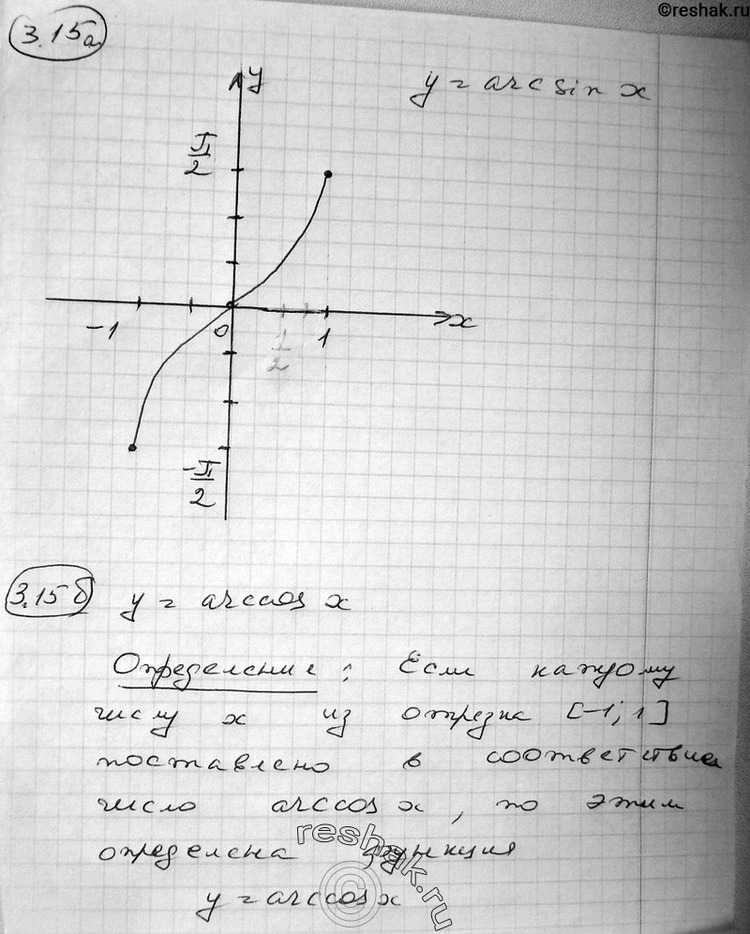 ©reshak.ru
3.15а
y
y = arcsin x
π/2
-1
0
1/2
1
x
-π/2
3.15 б
y = arccos x
Определение: Если каждому
числу x из отрезка [-1; 1]
поставлено в соответствие
число arccos x, то этим
определена функция
y = arccos x
reshak.ru
©